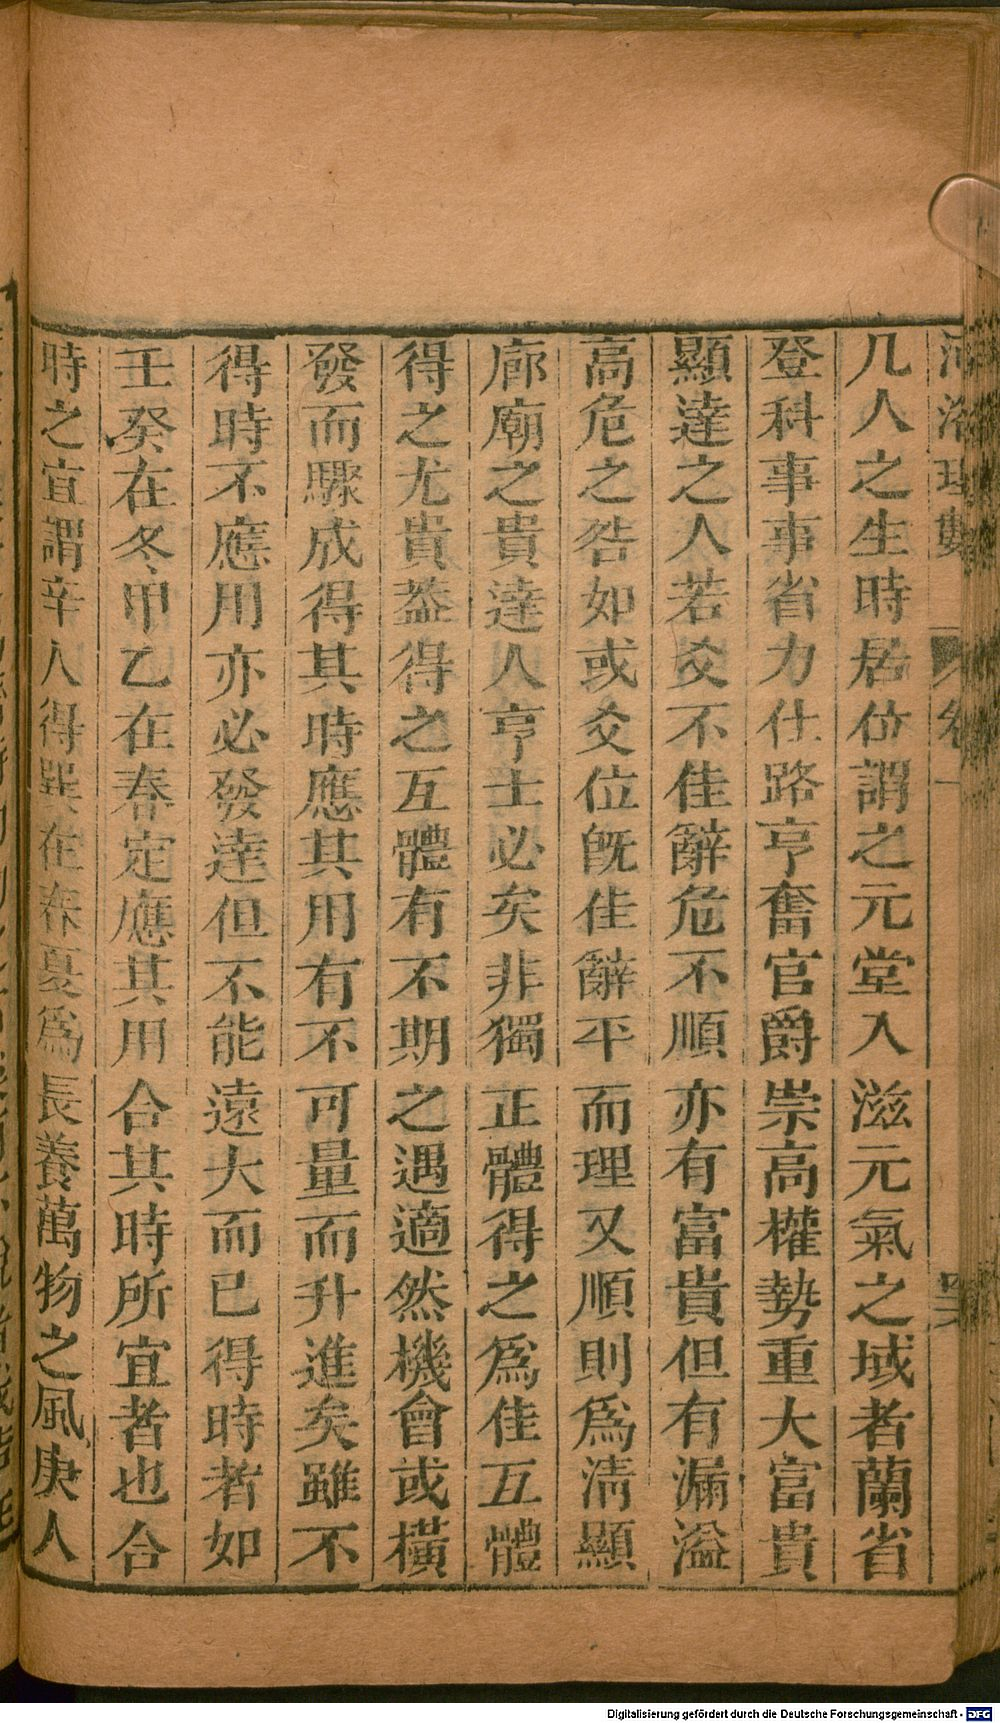 河洛理數 卷一
凢人之生時居位謂之元堂入滋元氣之域者蘭省
登科事事省力仕路亨奮官爵崇高權勢重大富貴
顯達之人若爻不佳辭危不順亦有富貴但有漏溢
高危之咎如或爻位旣佳辭平而理又順則爲淸顯
廊廟之貴達人亨士必矣非獨正體得之爲佳互體
得之尤貴葢得之互體有不期之遇適然機會或橫
發而驟成得其時應其用有不可量而升進矣雖不
得時不應用亦必發達但不能遠大而已得時者如
壬癸在冬甲乙在春定應其用合其時所宜者也合
時之宜謂辛人得巽在春夏爲長養萬物之風庚人
Digitalisierung gefördert durch die Deutsche Forschungsgemeinschaft - DFG